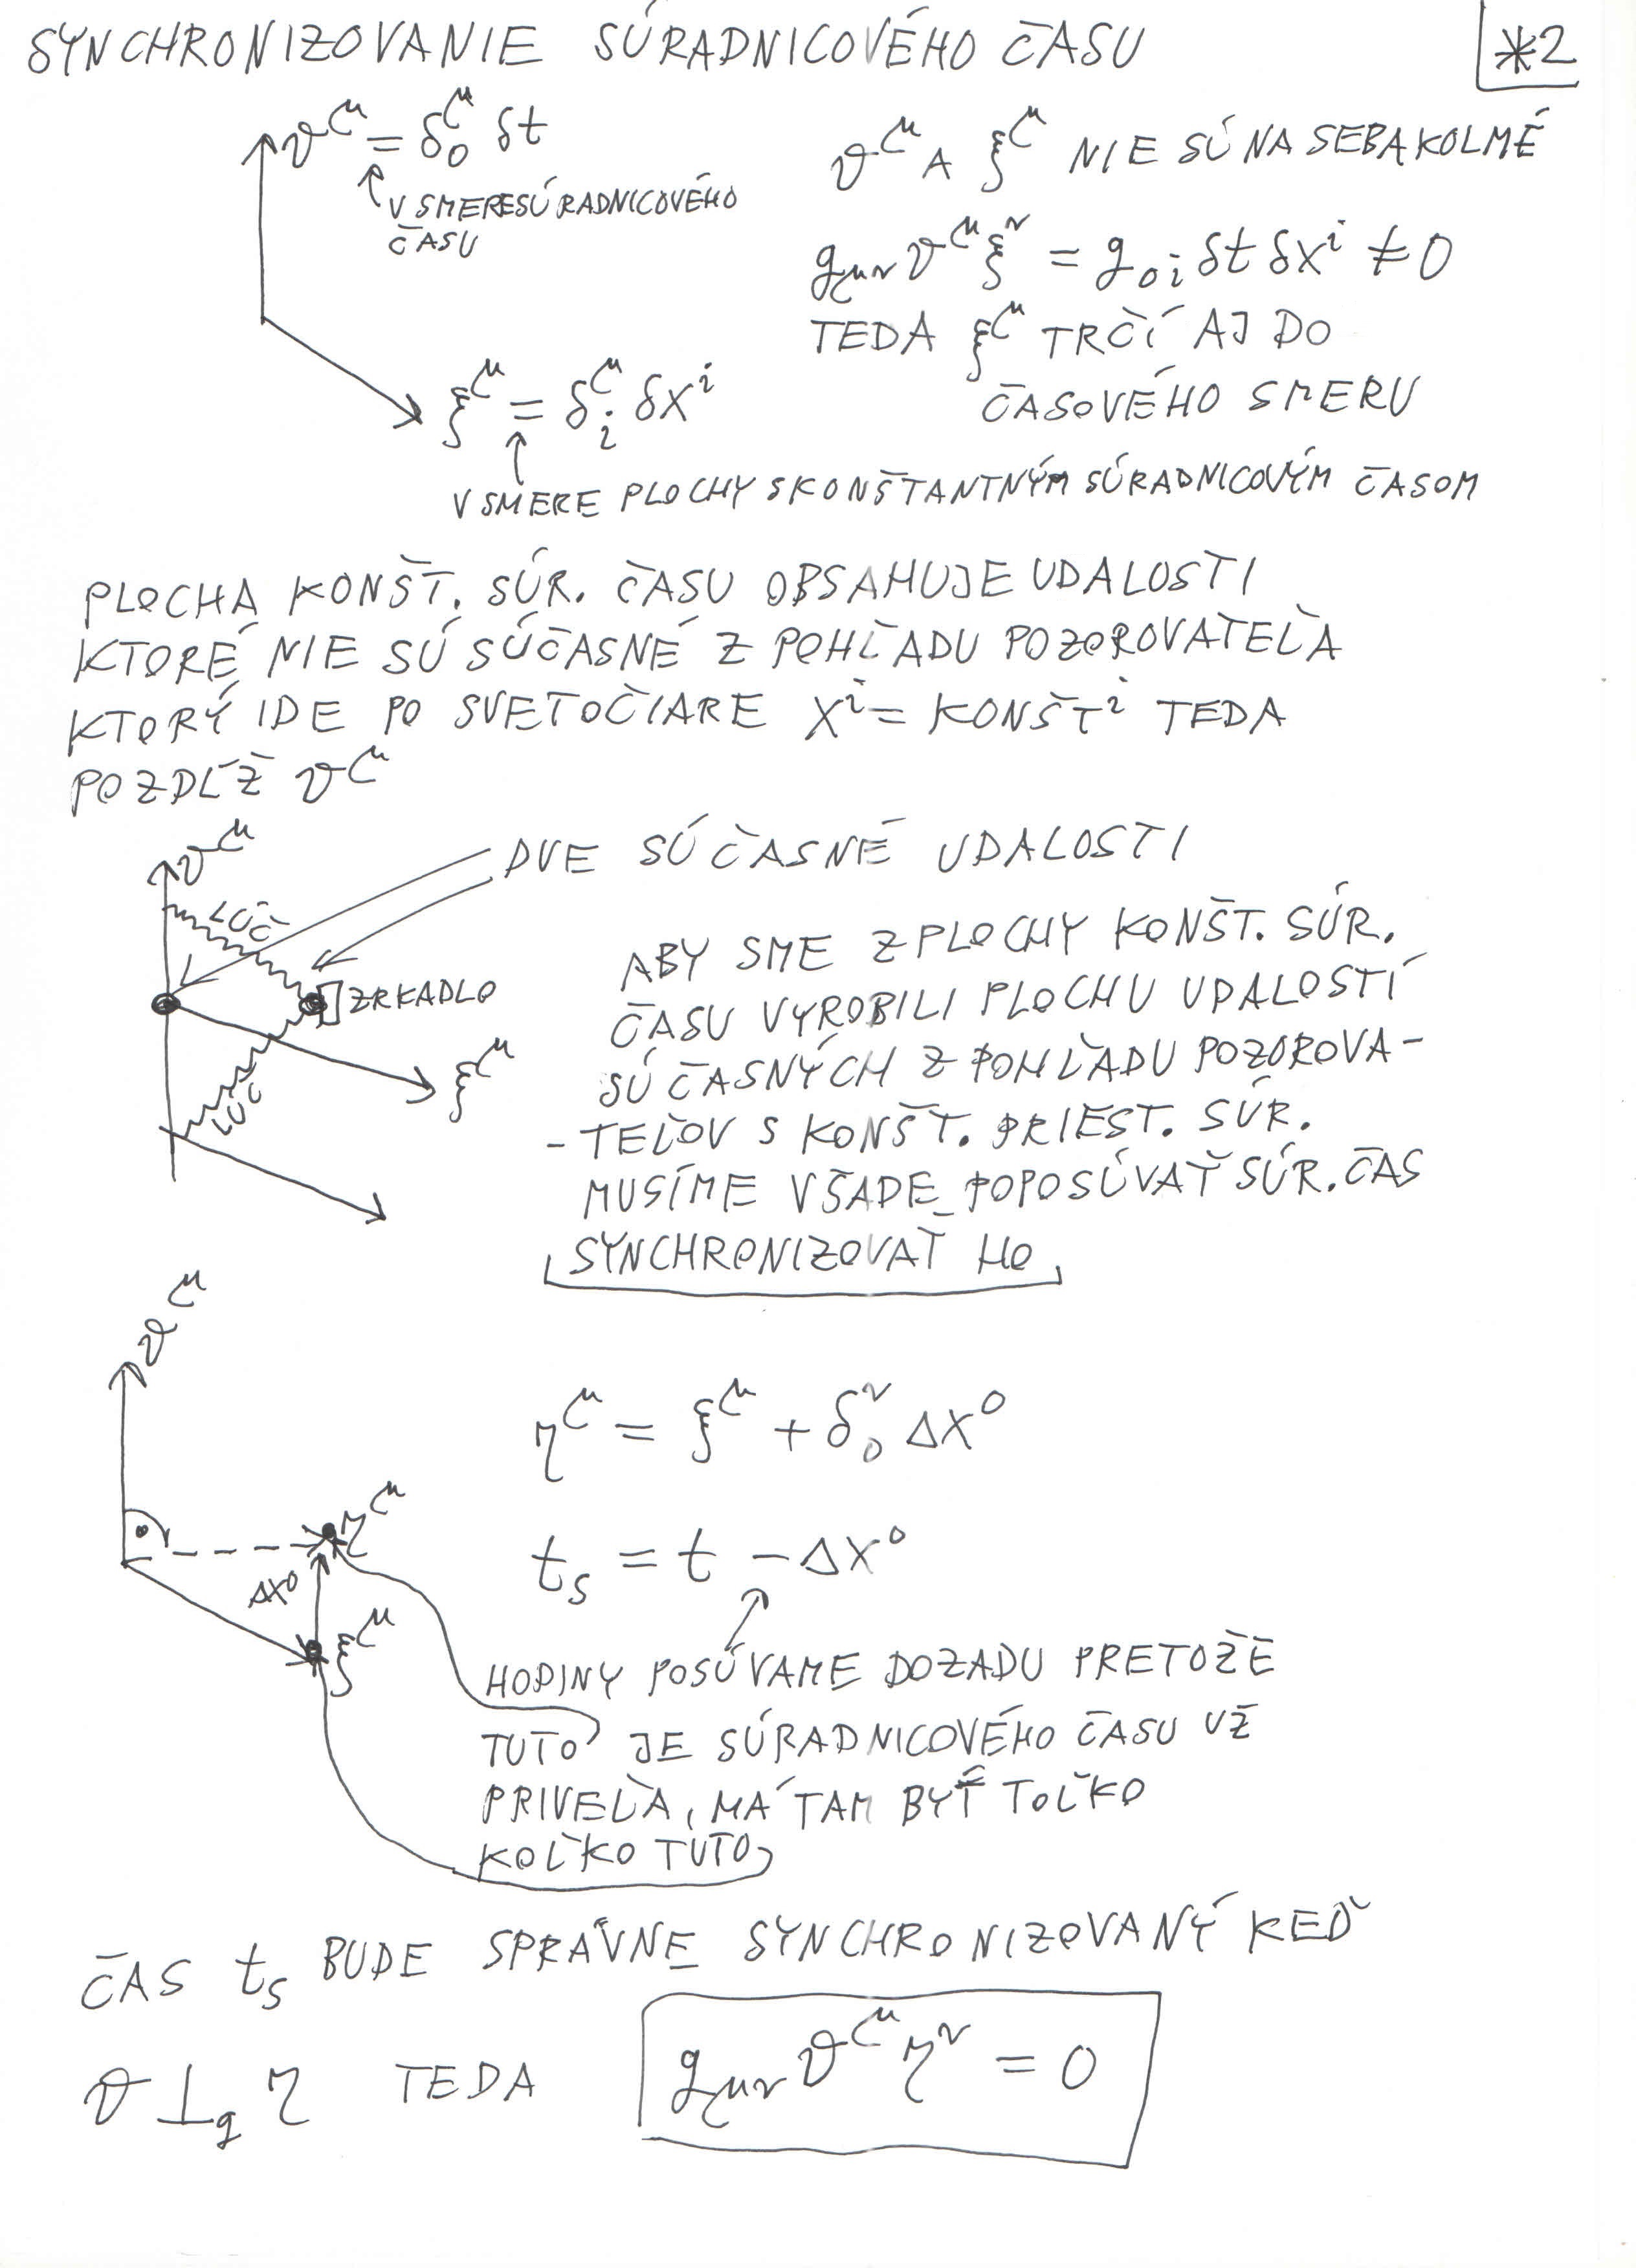 SYNCHRONIZOVANIE SÚRADNICOVÉHO ČASU
*2
v^μ = δ^μ_0 δt
V SMERE SÚRADNICOVÉHO
ČASU
v^μ A ξ^μ NIE SÚ NA SEBA KOLMÉ
g_μν v^μ ξ^ν = g_0i δt δx^i ≠ 0
TEDA ξ^μ TRČÍ AJ DO
ČASOVÉHO SMERU
ξ^μ = δ^μ_i δx^i
V SMERE PLOCHY S KONŠTANTNÝM SÚRADNICOVÝM ČASOM
PLOCHA KONŠT. SÚR. ČASU OBSAHUJE UDALOSTI
KTORÉ NIE SÚ SÚČASNÉ Z POHĽADU POZOROVATEĽA
KTORÝ IDE PO SVETOČIARE x^i = KONŠT^i TEDA
POZDĹŽ v^μ
v^μ
DVE SÚČASNÉ UDALOSTI
LÚČ
ZRKADLO
ξ^μ
LÚČ
ABY SME Z PLOCHY KONŠT. SÚR.
ČASU VYROBILI PLOCHU UDALOSTÍ
SÚČASNÝCH Z POHĽADU POZOROVA-
-TEĽOV S KONŠT. PRIEST. SÚR.
MUSÍME VŠADE POPOSÚVAŤ SÚR. ČAS
SYNCHRONIZOVAŤ HO
v^μ
η^μ = ξ^μ + δ^ν_0 Δx^0
η^μ
t_s = t - Δx^0
Δx^0
ξ^μ
HODINY POSÚVAME DOZADU PRETOŽE
TUTO JE SÚRADNICOVÉHO ČASU UŽ
PRIVEĽA, MÁ TAM BYŤ TOĽKO
KOĽKO TUTO
ČAS t_s BUDE SPRÁVNE SYNCHRONIZOVANÝ KEĎ
v ⊥_g η TEDA g_μν v^μ η^ν = 0